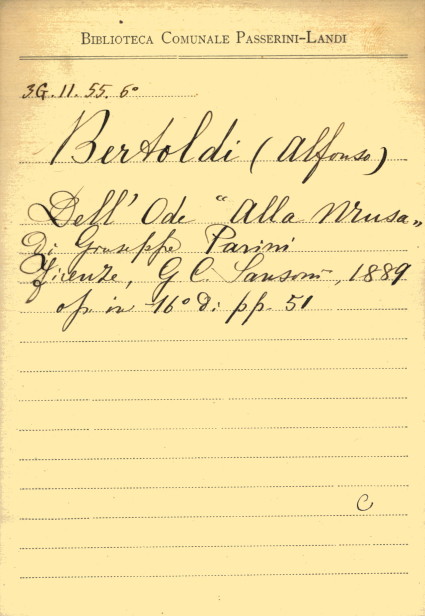 BIBLIOTECA COMUNALE PASSERINI-LANDI
3G.11.55.6°
Bertoldi (Alfonso)
Dell' Ode "Alla Musa"
Di Giuseppe Parini
Firenze, G C. Sansoni, 1889
op. in 16° di pp. 51
C